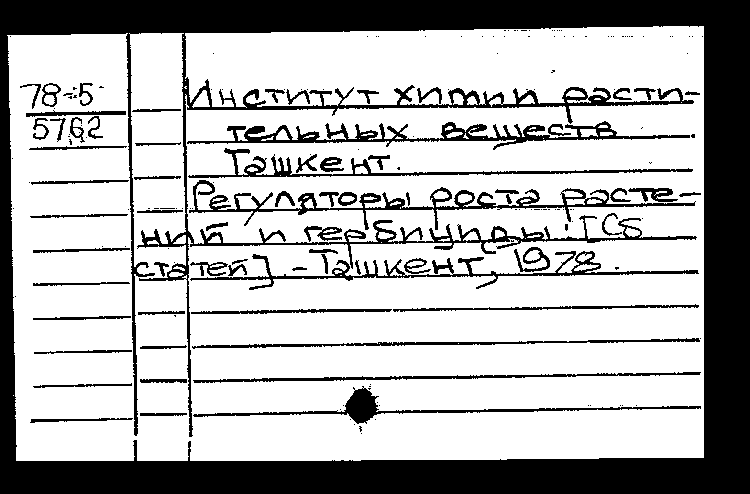 78-5
5762
Институт химии расти-
тельных веществ
Ташкент.
Регуляторы роста расте-
ний и гербициды. [Сб
статей] - Ташкент, 1978.